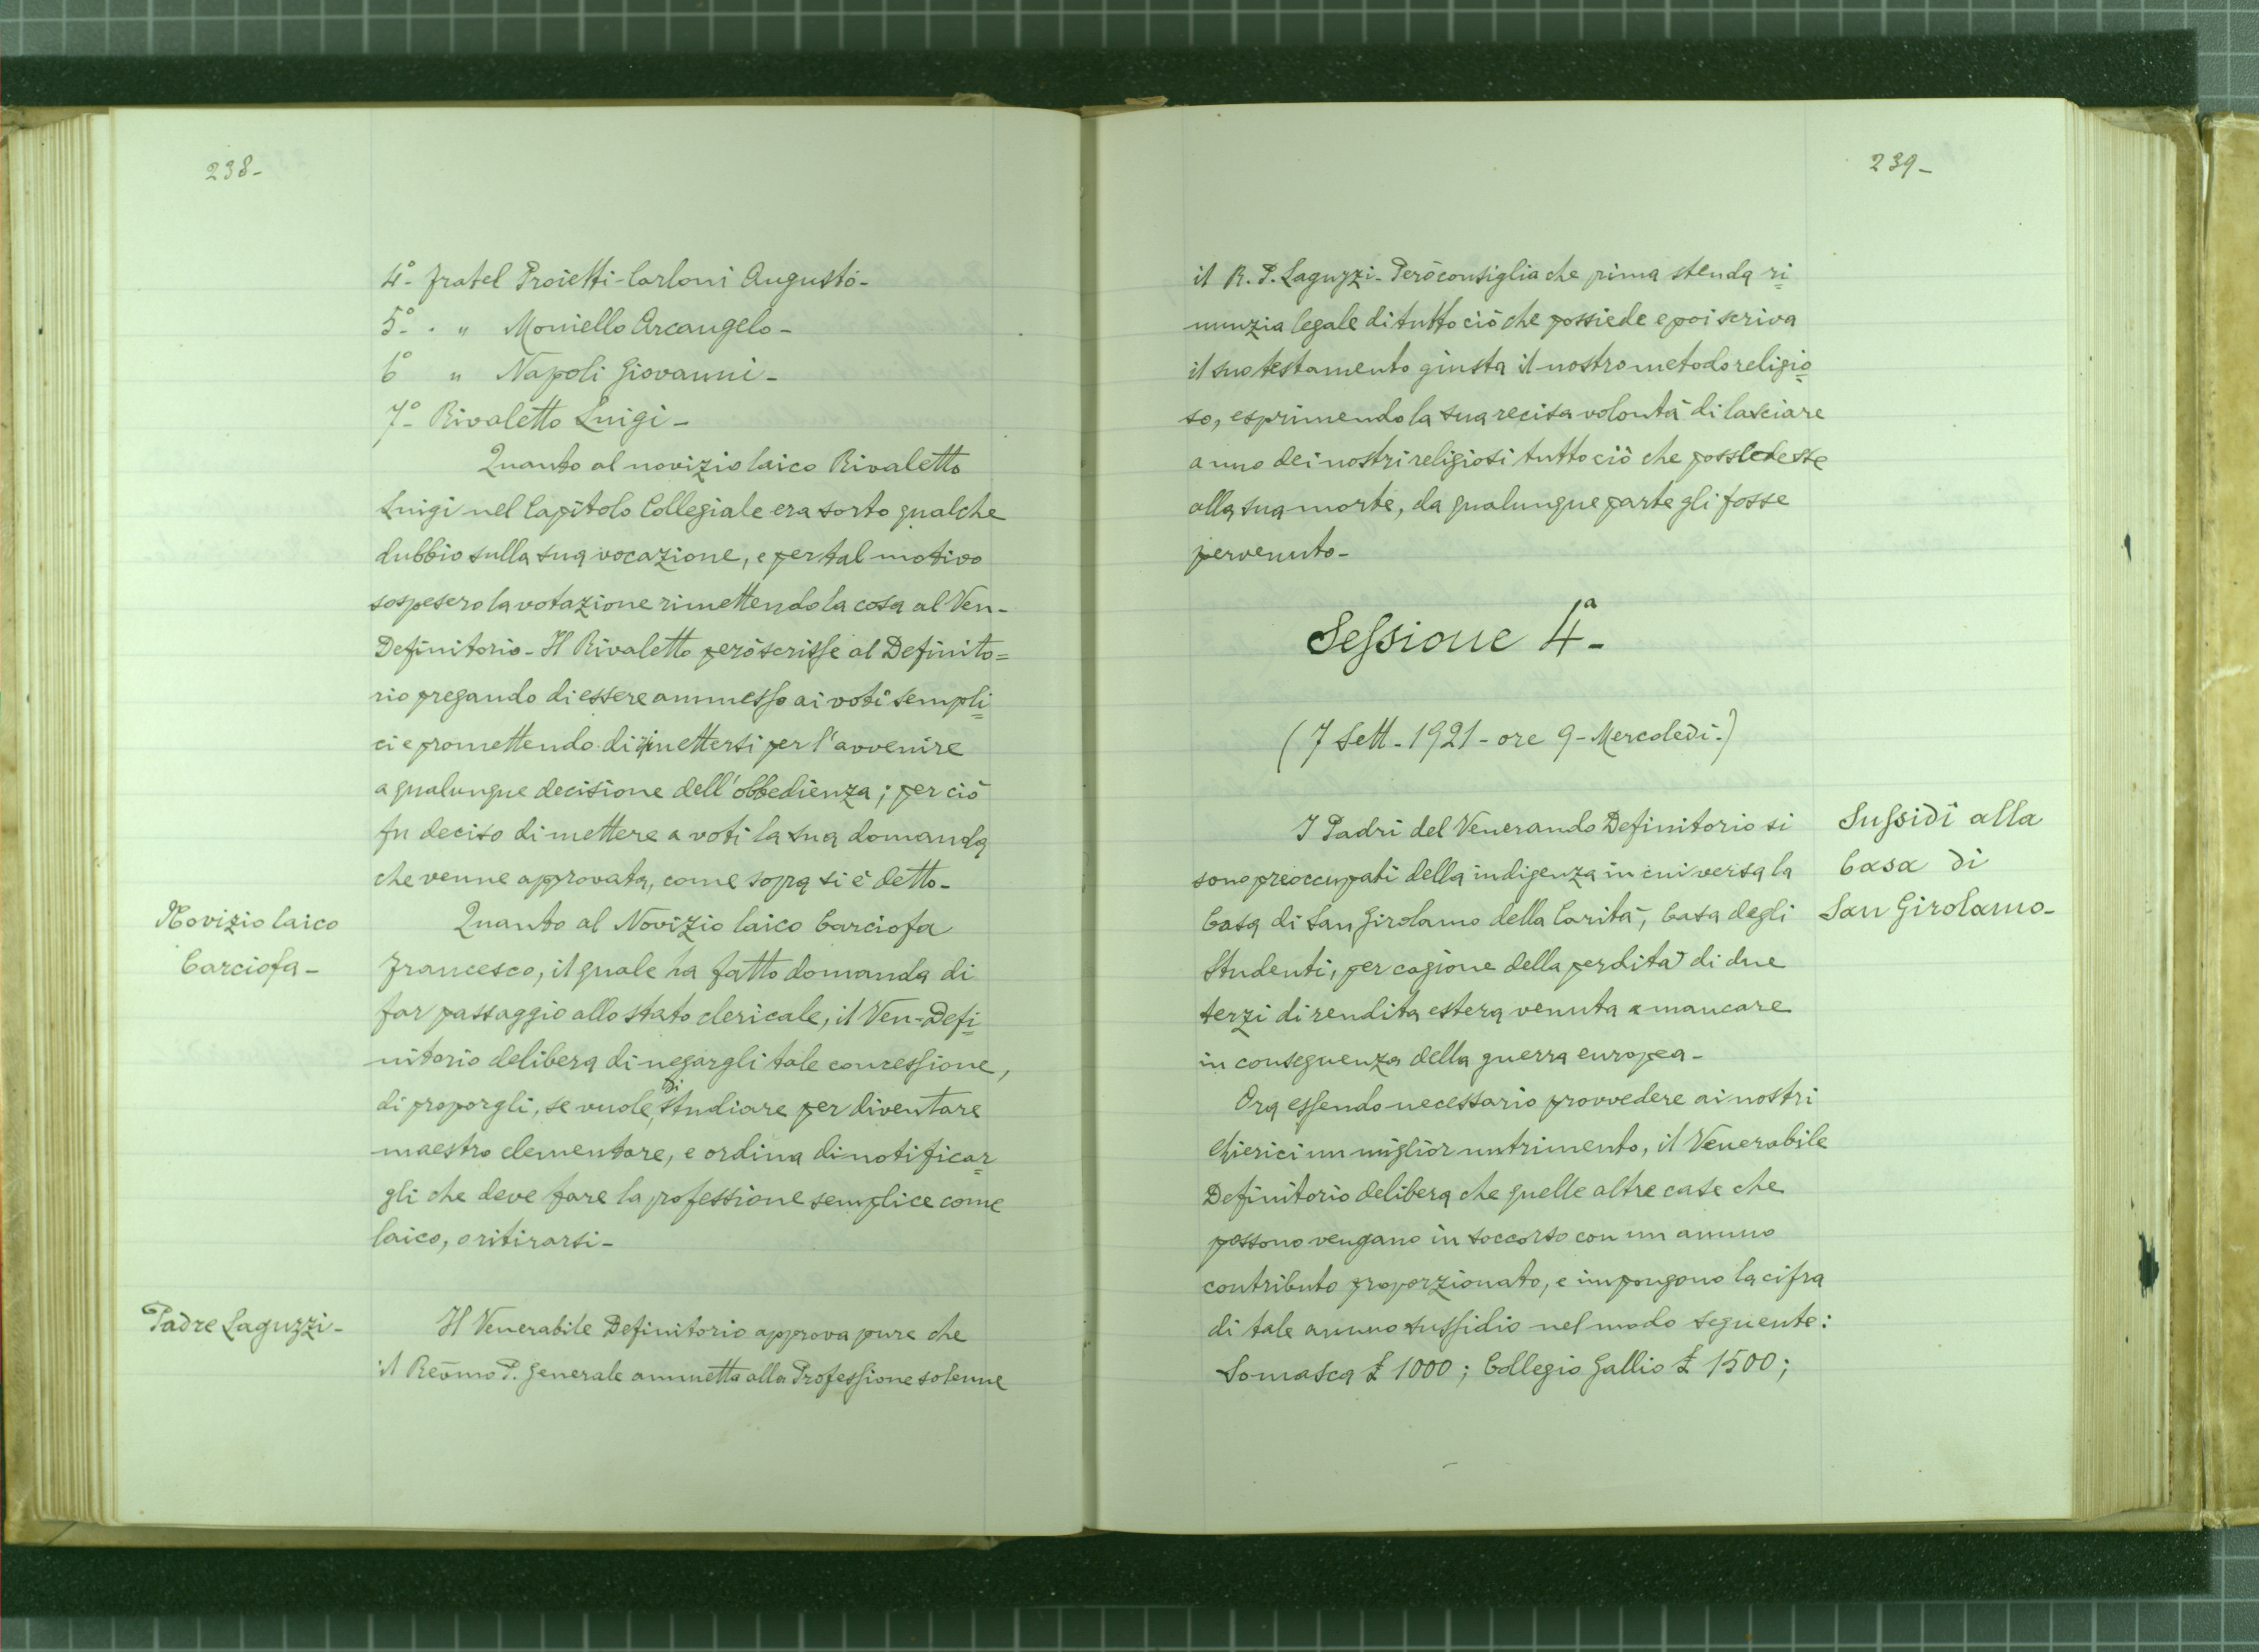 238-
4°- fratel Proietti-Carloni Augusto-
5°- . " Moniello Arcangelo-
6° " Napoli Giovanni-
7°- Rivaletto Luigi-
Quanto al novizio laico Rivaletto
Luigi nel Capitolo Collegiale era sorto qualche
dubbio sulla sua vocazione, e per tal motivo
sospesero la votazione rimettendo la cosa al Ven-
Definitorio- Il Rivaletto però scrisse al Definito=
rio pregando di essere ammesso ai voti sempli=
ci e promettendo di rimettersi per l'avvenire
a qualunque decisione dell'obbedienza; per ciò
fu deciso di mettere a voti la sua domanda
che venne approvata, come sopra si è detto-
Novizio laico
Carciofa-
Quanto al Novizio laico Carciofa
Francesco, il quale ha fatto domanda di
far passaggio allo stato clericale, il Ven-Defi=
nitorio delibera di negargli tale concessione,
di proporgli, se vuole, di studiare per diventare
maestro elementare, e ordina di notificar=
gli che deve fare la professione semplice come
laico, o ritirarsi-
Padre Laguzzi-
Il Venerabile Definitorio approva pure che
il Reṽmo P. Generale ammetta alla Professione solenne
239-
il R. P. Laguzzi- Però consiglia che prima stenda ri=
nunzia legale di tutto ciò che possiede e poi scriva
il suo testamento giusta il nostro metodo religio=
so, esprimendo la sua recisa volontà di lasciare
a uno dei nostri religiosi tutto ciò che possedesse
alla sua morte, da qualunque parte gli fosse
pervenuto-
Sessione 4ª-
(7 Sett-1921-ore 9-Mercoledì-)
Sussidi alla
Casa di
San Girolamo-
I Padri del Venerando Definitorio si
sono preoccupati della indigenza in cui versa la
Casa di San Girolamo della Carità, Casa degli
Studenti, per cagione della perdita di due
terzi di rendita estera venuta a mancare
in conseguenza della guerra europea-
Ora essendo necessario provvedere ai nostri
Chierici un miglior nutrimento, il Venerabile
Definitorio delibera che quelle altre case che
possono vengano in soccorso con un annuo
contributo proporzionato, e impongono la cifra
di tale annuo sussidio nel modo seguente:
Somasca £ 1000; Collegio Gallio £ 1500;